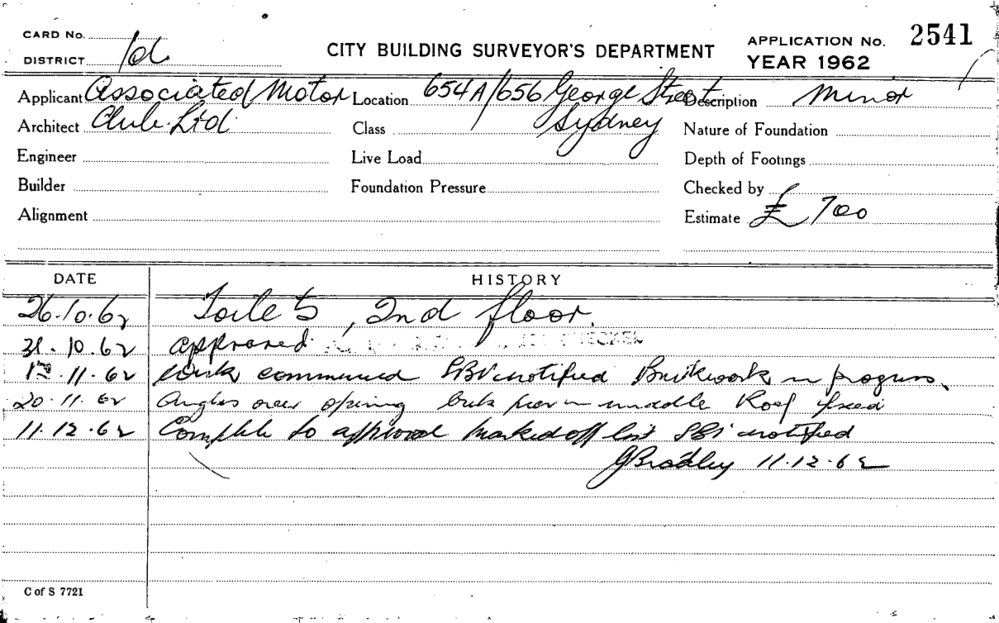 CARD No.
DISTRICT 1d.
CITY BUILDING SURVEYOR'S DEPARTMENT
APPLICATION No. 2541
YEAR 1962
Applicant Associated Motor Location 654A/656 George Street Description Minor
Architect Club Ltd. Class Sydney Nature of Foundation
Engineer Live Load Depth of Footings
Builder Foundation Pressure Checked by
Alignment Estimate £ 700
DATE HISTORY
26.10.62 Toilets, 2nd floor.
31.10.62 approved
11.62 Work commenced SBI notified Brickwork in progress.
20.11.62 Angles over opening brick pier in middle Roof fixed
11.12.62 Complete to approval Marked off list SBI notified
JBradley 11.12.62
C of S 7721